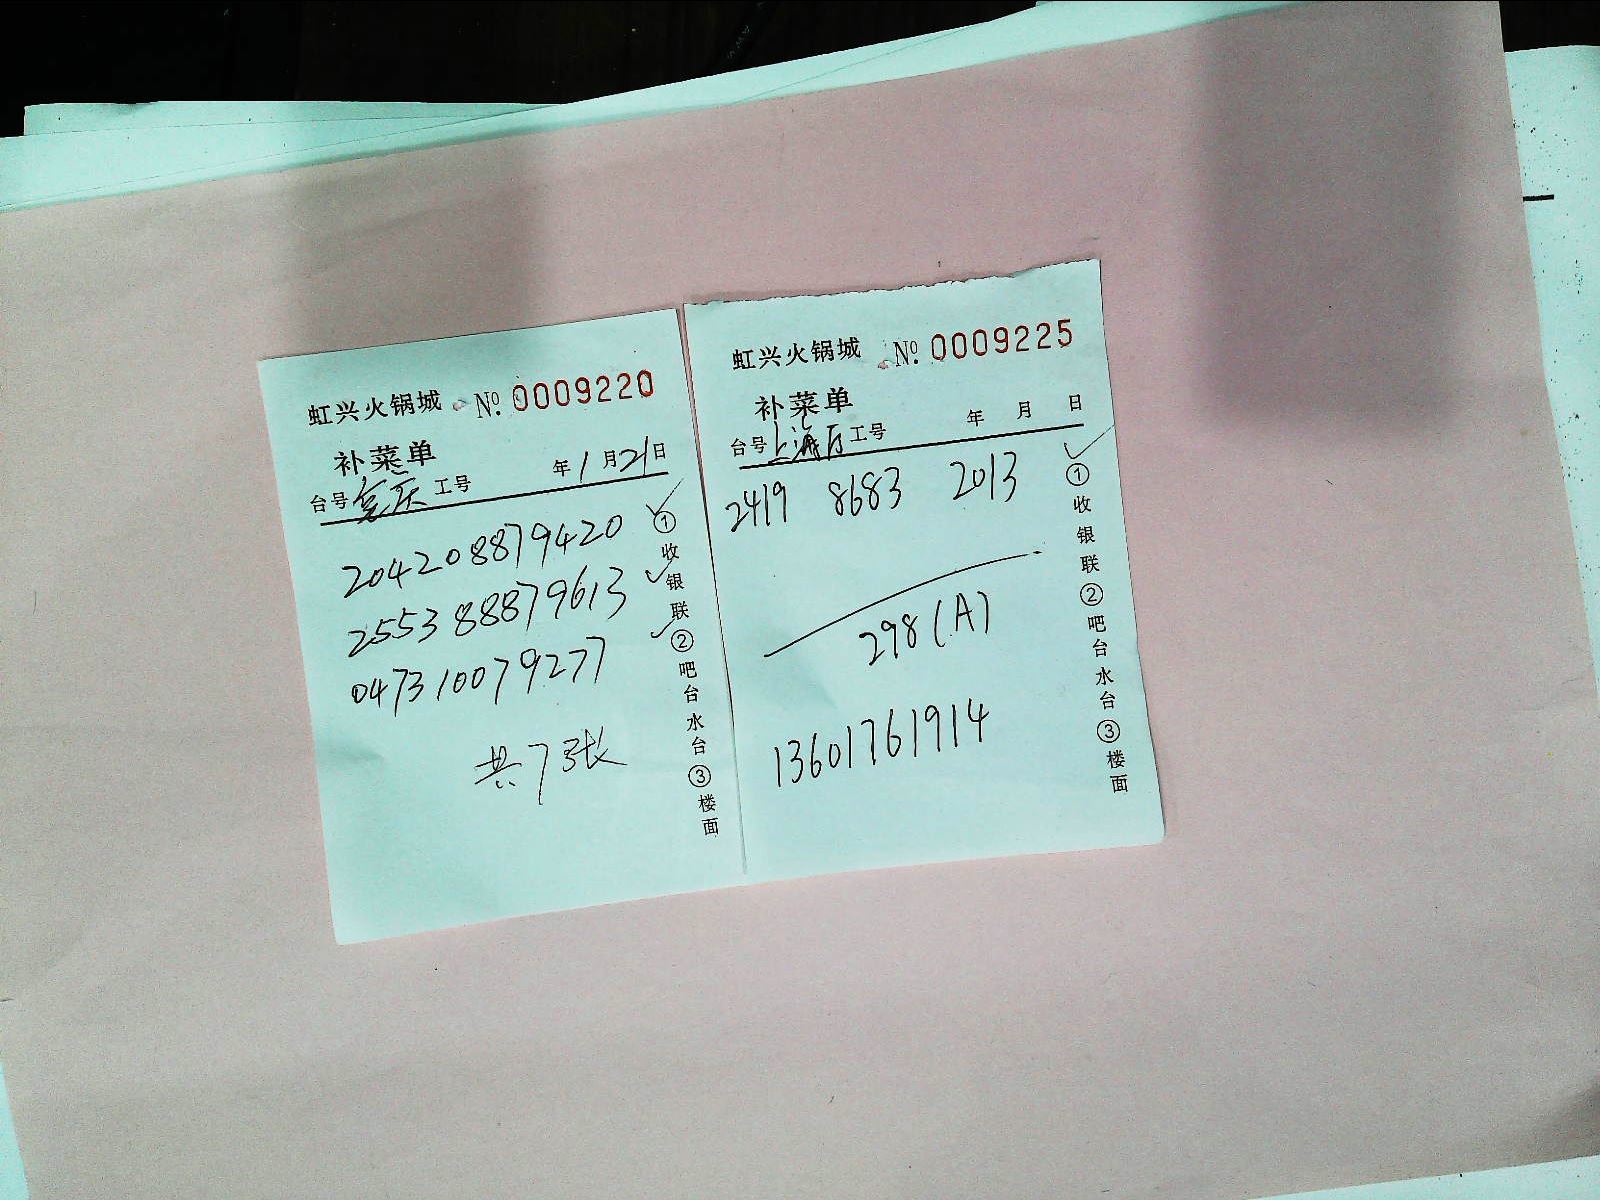 虹兴火锅城 No. 0009220
补菜单
台号 重庆 工号 年 1 月 21 日
204208879420
255388879613
047310079277
共7张
①收银联②吧台水台③楼面
虹兴火锅城 No. 0009225
补菜单
台号 上海厅 工号 年 月 日
2419 8683 2013
298(A)
13601761914
①收银联②吧台水台③楼面